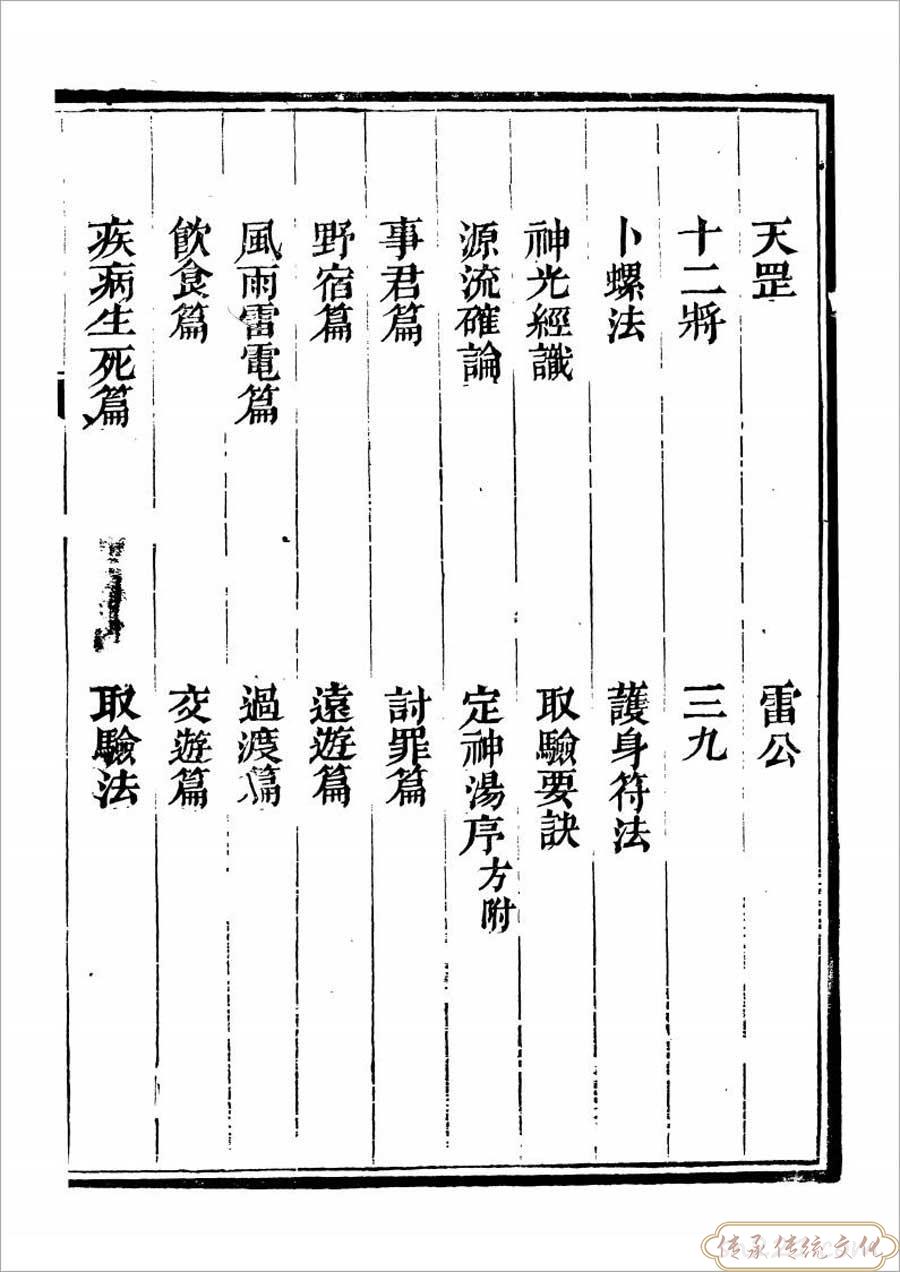 天罡 雷公
十二將 三九
卜螺法 護身符法
神光經讖 取驗要訣
源流確論 定神湯序方附
事君篇 討罪篇
野宿篇 遠遊篇
風雨雷電篇 過渡篇
飲食篇 交遊篇
疾病生死篇 取驗法
传承传统文化